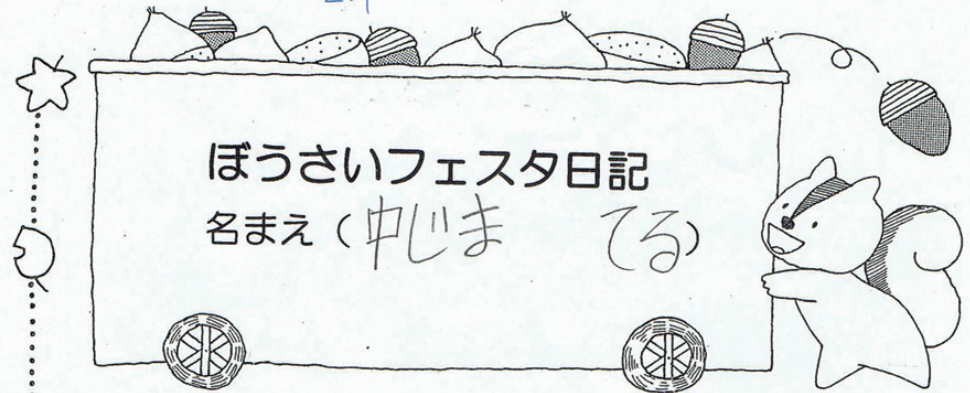 ぼうさいフェスタ日記
名まえ（中じま　てる）